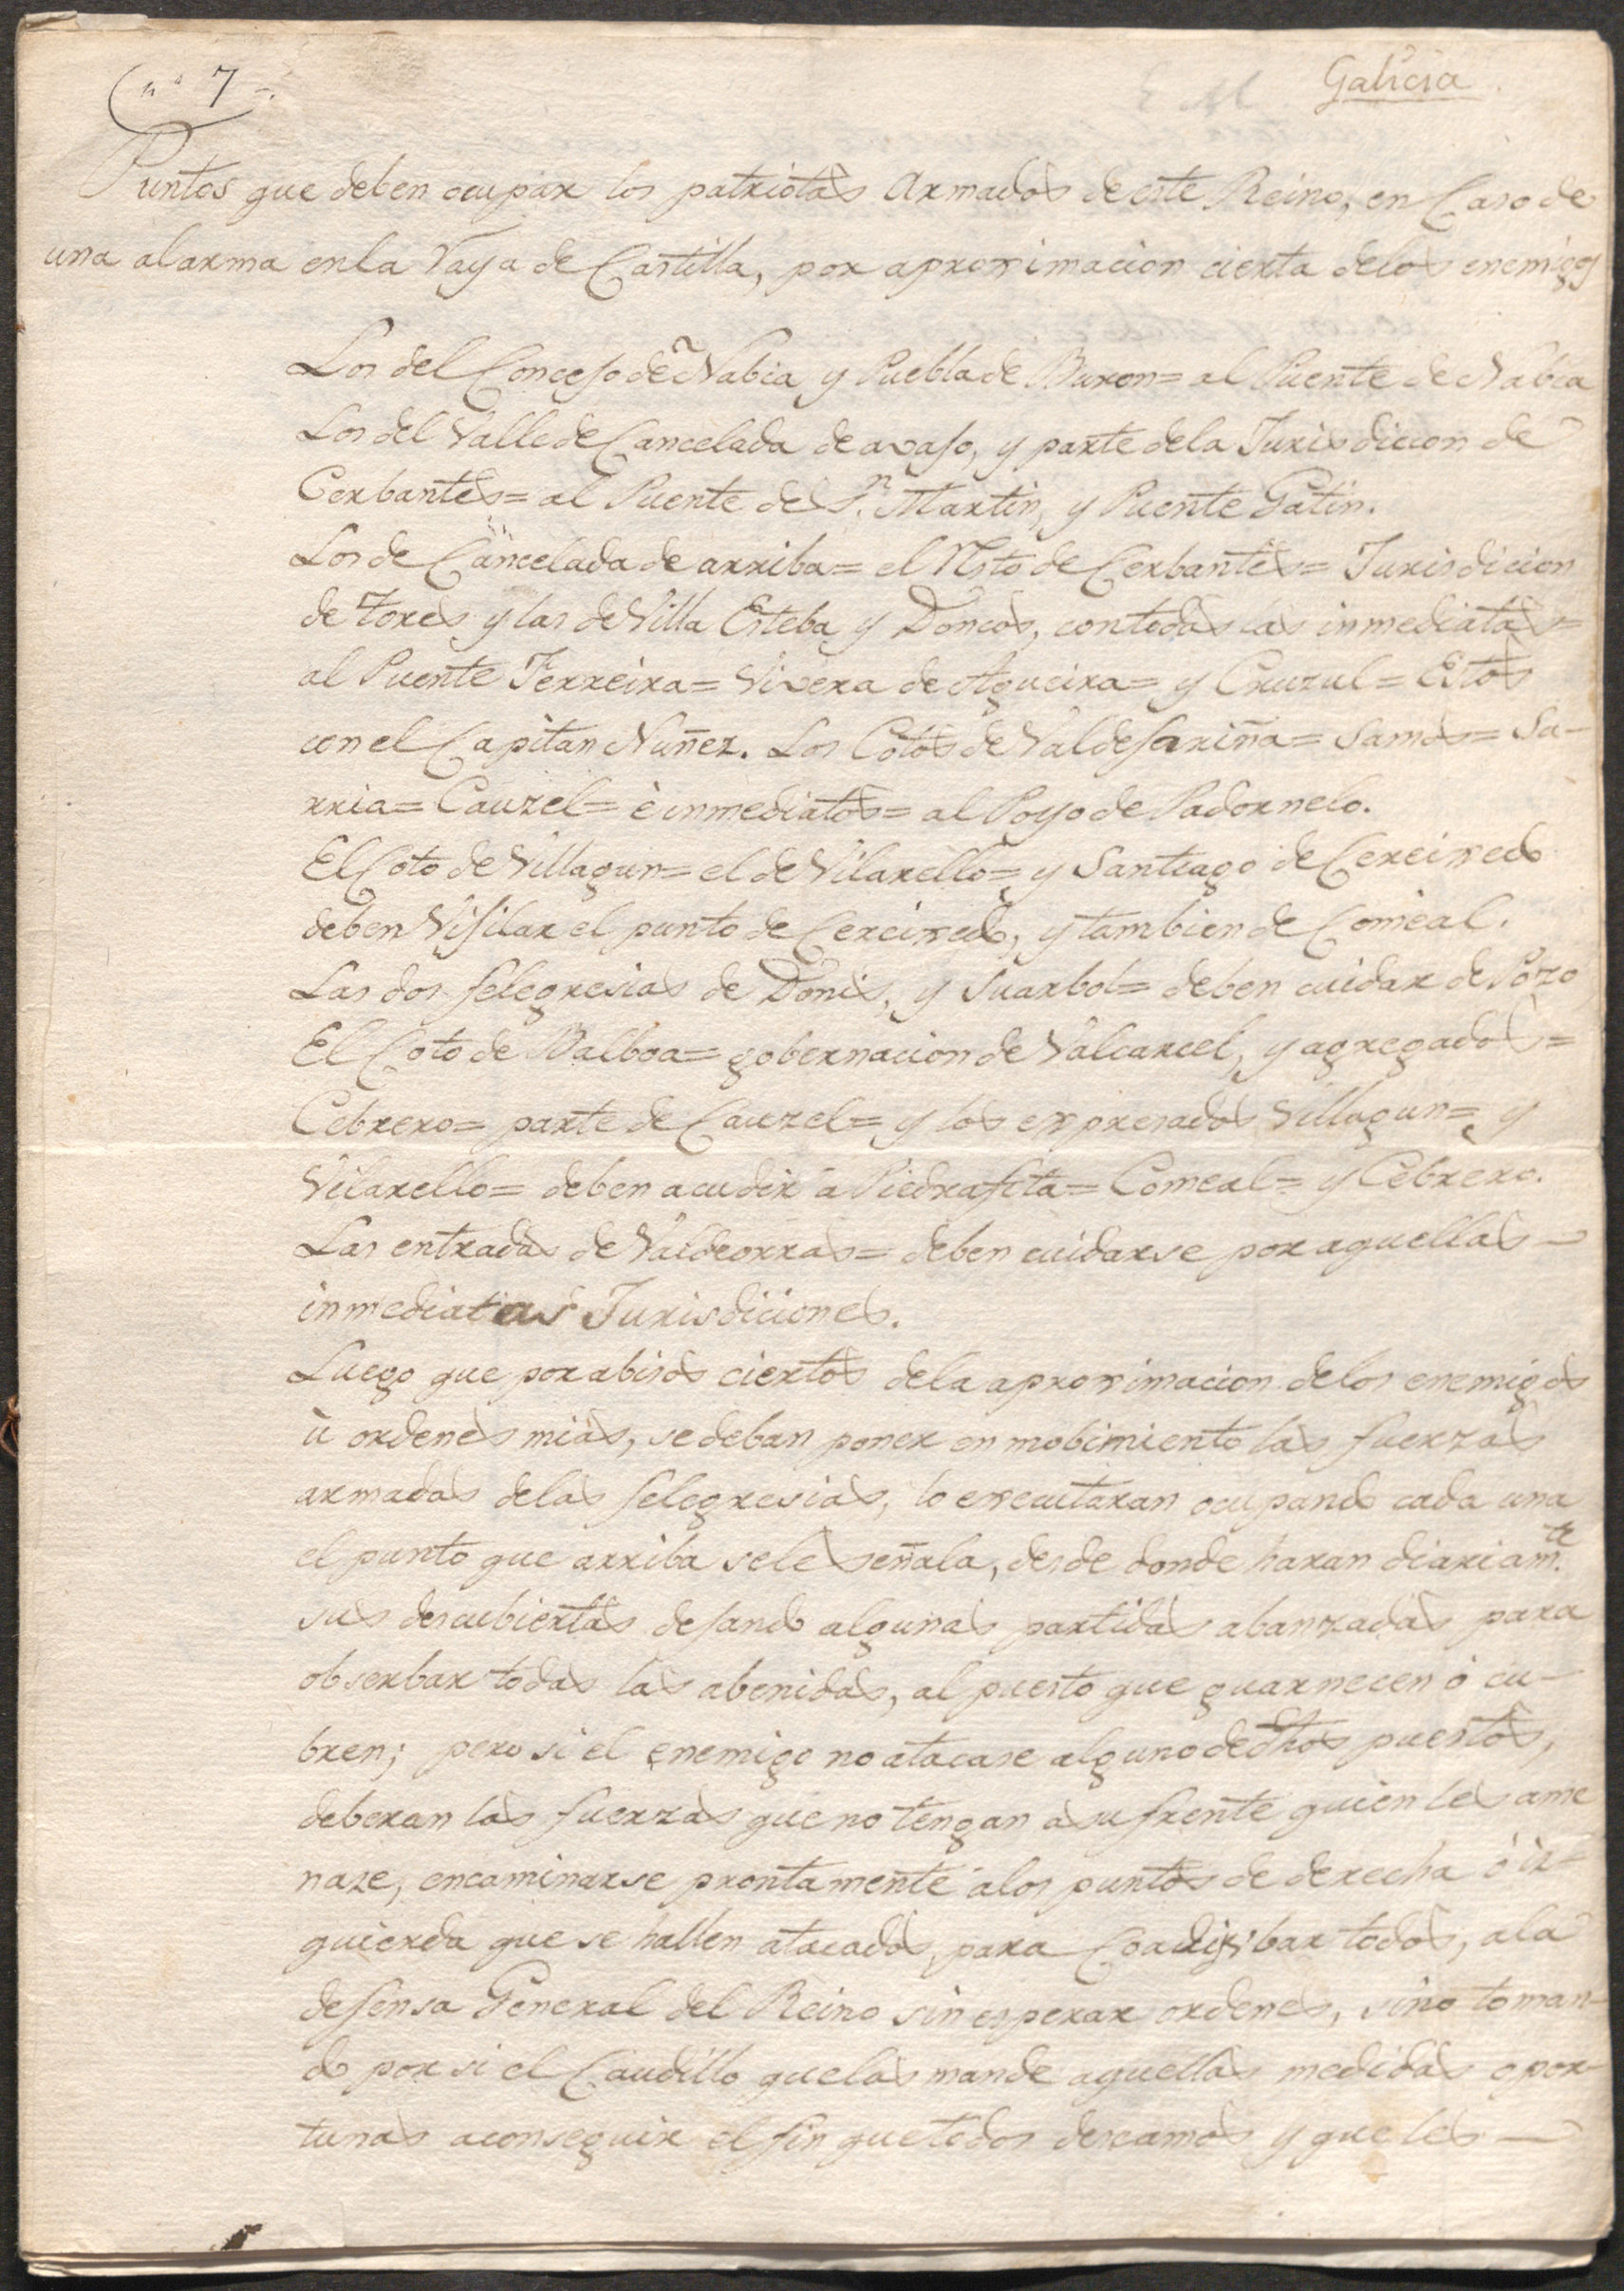 nº 7
Galicia.
Puntos que deben ocupar los patriotas Armados de este Reino, en Caso de
una alarma en la Raya de Castilla, por aproximacion cierta delos enemigos
Los del Concejo de Nabia y Puebla de Buron= al Puente de Nabia
Los del Valle de Cancelada de avajo, y parte dela Jurisdiccion de
Cerbantes= al Puente de Sn. Martin, y Puente Gatin.
Los de Cancelada de arriba= el Rsto de Cerbantes= Jurisdicion
de Tores y las de Villa Esteba y Doncos, con todas las inmediatas=
al Puente Ferreira= Rivera de Agueira= y Cruzul= Estos
con el Capitan Nuñez. Los Cotos de Valdefariña= Samos= Sa-
rria= Caurel= è inmediatos= al Poyo de Padornelo.
El Coto de Villagun= el de Vilarello= y Santiago de Cereixedo
deben Vijilar el punto de Cereixedo, y tambien de Comeal.
Las dos felegresias de Donis, y Suarbol= deben cuidar de Pozo
El Coto de Balboa= gobernacion de Valcarcel, y agregados=
Cebrero= parte de Caurel= y los expresados Villagun= y
Vilarello= deben acudir a Piedrafita= Comeal= y Cebrero.
Las entradas de Valdeorras= deben cuidarse por aquellas
inmediatas Jurisdiciones.
Luego que por abisos ciertos dela aproximacion delos enemigos
ù ordenes mias, se deban poner en mobimiento las fuerzas
armadas delas felegresias, lo executaran ocupando cada una
el punto que arriba sele señala, desde donde haran diariamte.
sus descubiertas dejando algunas partidas abanzadas para
obserbar todas las abenidas, al puesto que guarnecen ó cu-
bren; pero si el enemigo no atacase alguno de dhos puestos,
deberan las fuerzas que no tengan a su frente quien les ame
naze, encaminarse prontamente alos puntos de derecha ó iz=
quierda que se hallen atacados, para Coadyubar todos, ala
defensa General del Reino sin esperar ordenes, sino toman-
do por si el Caudillo que las mande aquellas medidas opor-
tunas aconseguir el fin que todos deseamos y que les